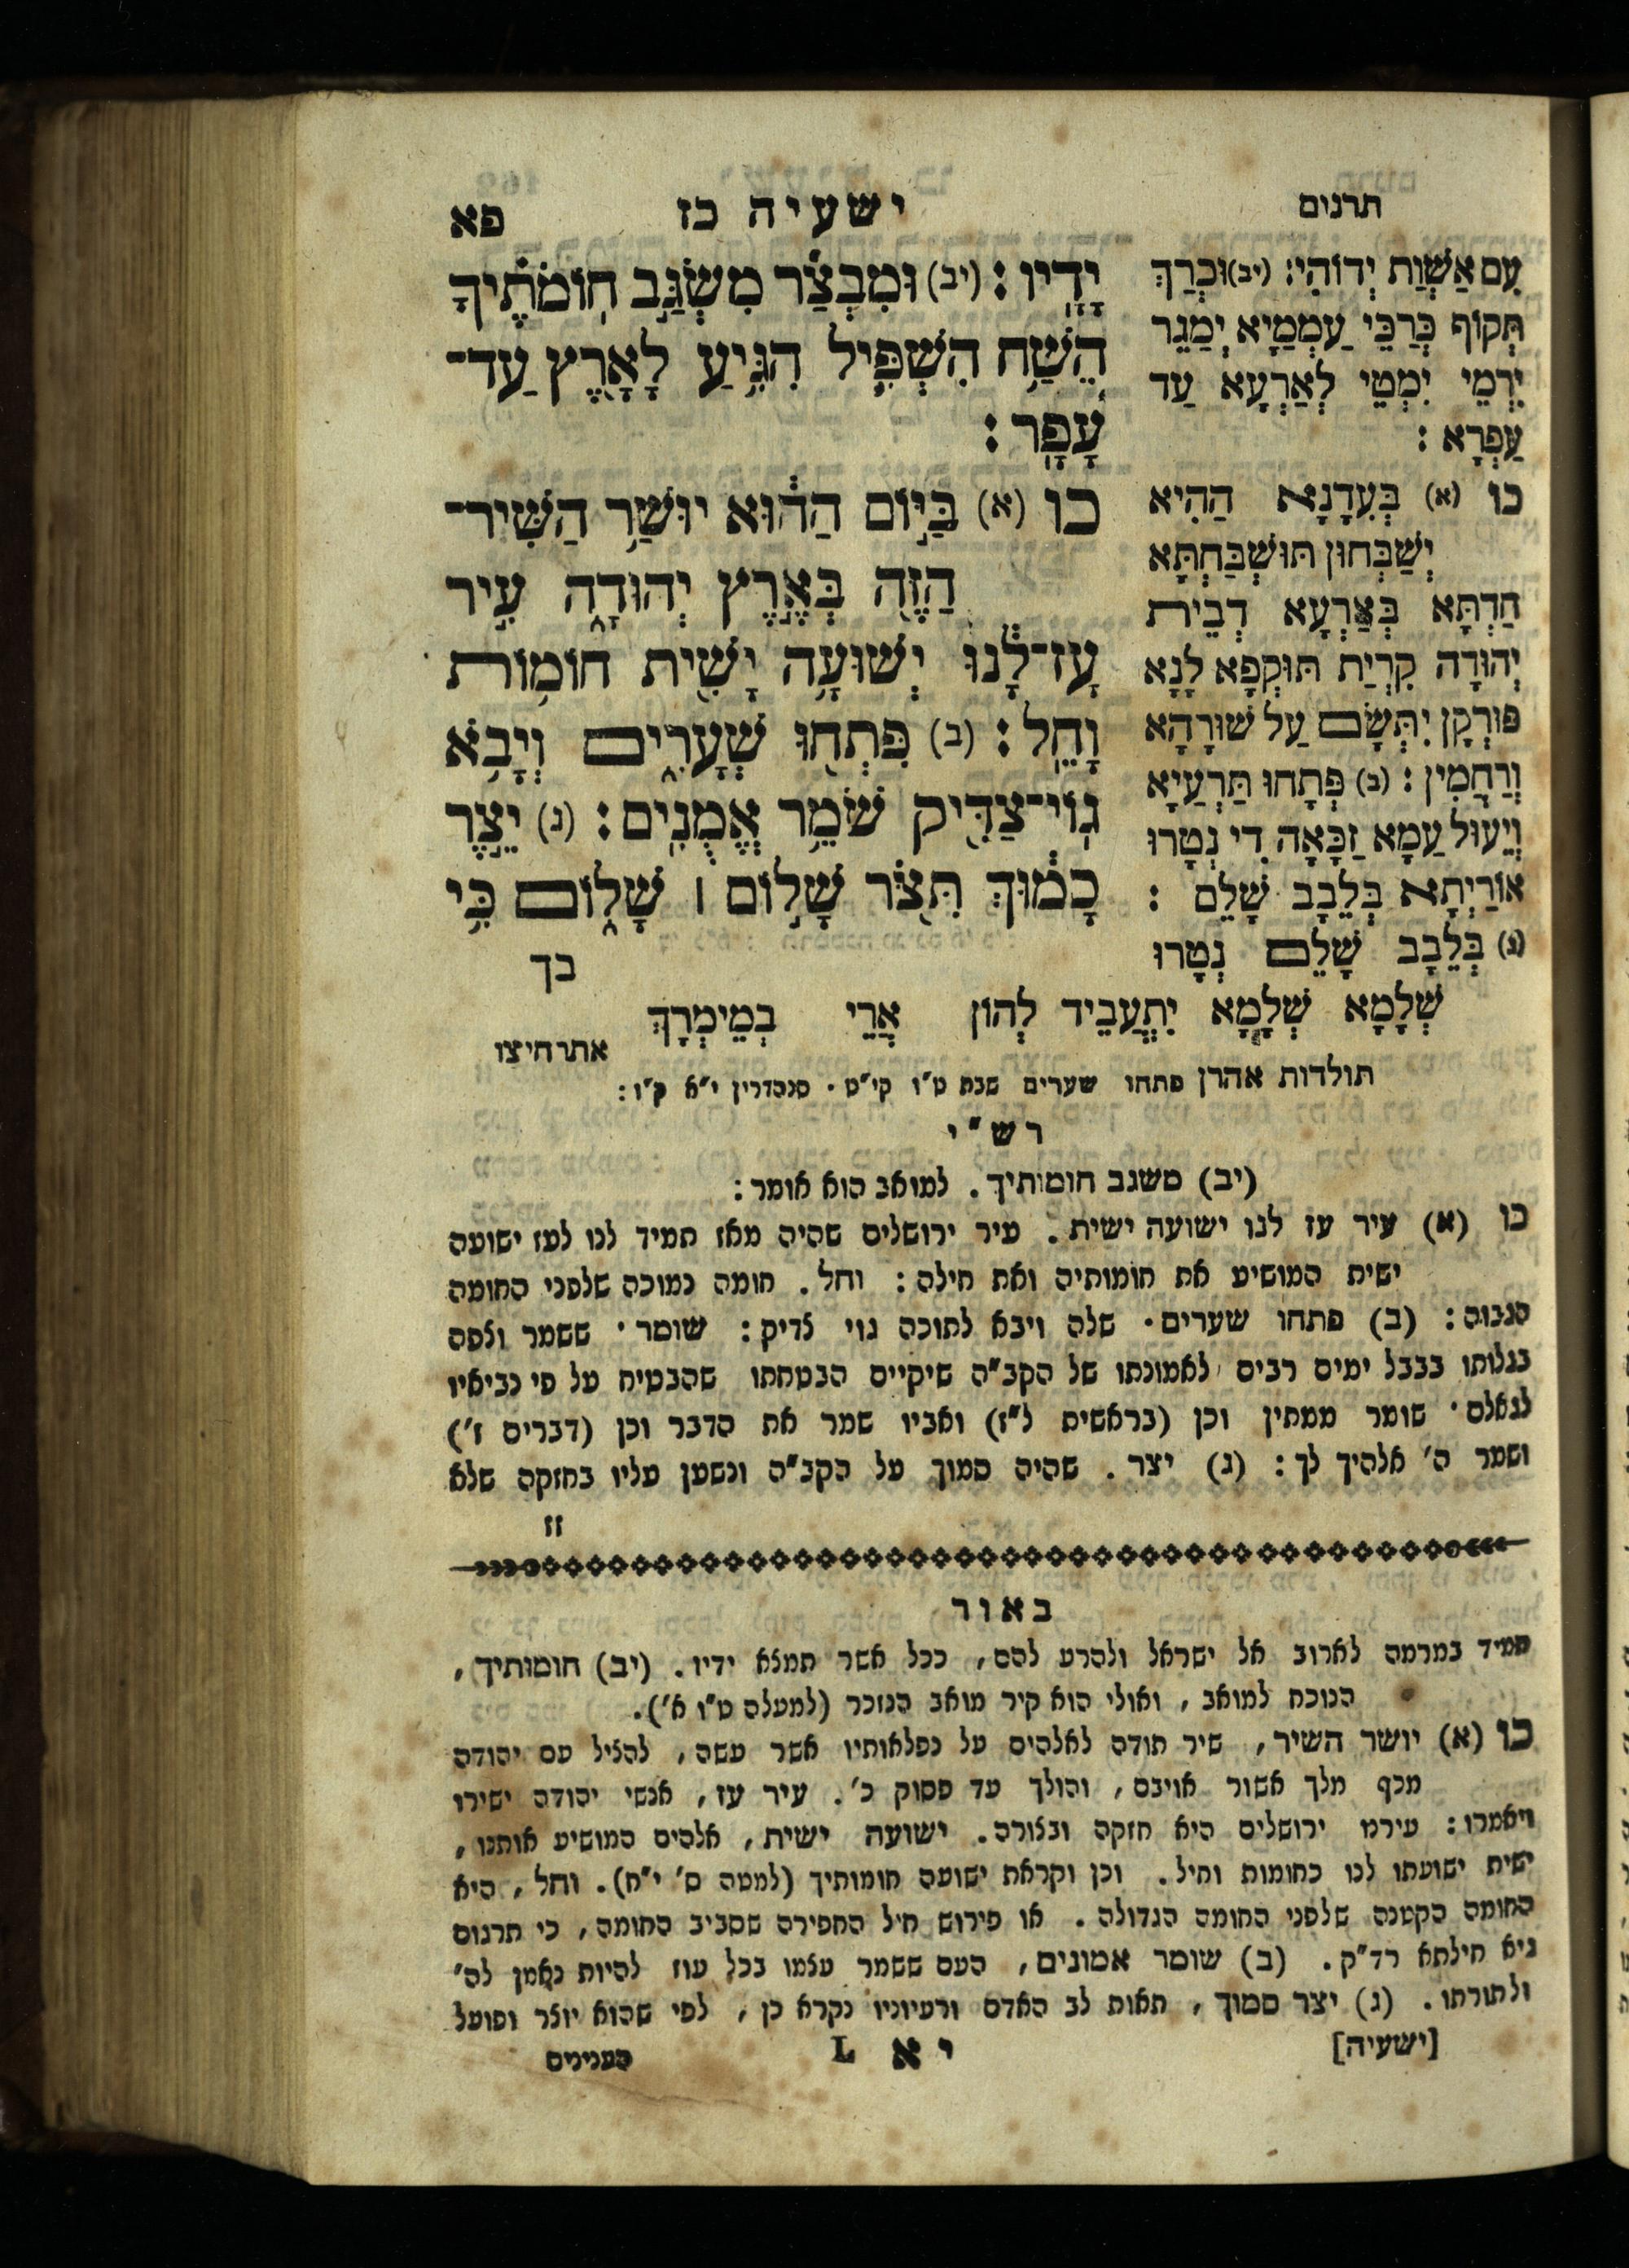 תרגום
ישעיה כז
פא
יָדָֽיו: (יב) וּמִבְצַ֞ר מִשְׂגַּ֣ב חֽוֹמֹתֶ֗יךָ
הֵשַׁ֥ח הִשְׁפִּ֛יל הִגִּ֥יעַ לָאָ֖רֶץ עַד־
עָפָֽר:
כו (א) בַּיּ֣וֹם הַה֔וּא יוּשַׁ֥ר הַשִּׁיר־
הַזֶּ֖ה בְּאֶ֣רֶץ יְהוּדָ֑ה עִ֣יר
עָז־לָ֔נוּ יְשׁוּעָ֥ה יָשִׁ֖ית חוֹמ֥וֹת
וָחֵֽל: (ב) פִּתְח֖וּ שְׁעָרִ֑ים וְיָבֹ֥א
גֽוֹי־צַדִּ֖יק שֹׁמֵ֥ר אֱמֻנִֽים: (ג) יֵ֣צֶר
כָּמ֔וּךְ תִּצֹּ֖ר שָׁל֣וֹם ׀ שָׁל֑וֹם כִּ֥י
בך
עִם אַשְׁוַת יְדוֹהִי: (יב) וּכְרַךְ
תְּקוֹף כְּרַכֵּי עַמְמַיָא יְמַגֵר
יִרְמֵי יִמְטֵי לְאַרְעָא עַד
עַפְרָא:
כו (א) בְּעִדָנָא הַהִיא
יְשַׁבְּחוּן תּוּשְׁבַּחְתָּא
חַדְתָּא בְּאַרְעָא דְבֵית
יְהוּדָה קִרְיַת תּוּקְפָא לָנָא
פּוּרְקָן יִתְּשָׂם עַל שׁוּרָהָא
וְרַחֲמִין: (ב) פְּתָחוּ תַּרְעַיָא
וְיֵעוּל עַמָא זַכָּאָה דִי נְטָרוּ
אוֹרַיְתָא בְּלֵבָב שָׁלֵם:
(ג) בְּלֵבָב שָׁלֵם נְטָרוּ
שְׁלָמָא שְׁלָמָא יִתְעֲבֵיד לְהוֹן אֲרֵי בְמֵימְרָךְ
אתרחיצו
תולדות אהרן פתחו שערים שבת ט״ו קי״ט. סנהדרין י״א ק״ו:
רש״י
(יב) משגב חומותיך. למואב הוא אומר:
כו (א) עיר עז לנו ישועה ישית. עיר ירושלים שהיה מאז תמיד לנו לעז ישועה
ישית המושיע את חומותיה ואת חילה: וחל. חומה נמוכה שלפני החומה
הגבוה: (ב) פתחו שערים. שלה ויבא לתוכה גוי צדיק: שומר. ששמר וצפה
בגלותו בבבל ימים רבים לאמונתו של הקב״ה שיקיים הבטחתו שהבטיח על פי נביאיו
לגאלם. שומר ממתין וכן (בראשית ל״ז) ואביו שמר את הדבר וכן (דברים ז׳)
ושמר ה׳ אלהיך לך: (ג) יצר. שהיה סמוך על הקב״ה ונשען עליו בחזקה שלא
זז
באור
תמיד במרמה לארוב אל ישראל ולהרע להם, ככל אשר תמצא ידיו. (יב) חומותיך,
הנוכח למואב, ואולי הוא קיר מואב הנזכר (למעלה ט״ו א׳).
כו (א) יושר השיר, שיר תודה לאלהים על נפלאותיו אשר עשה, להציל עם יהודה
מכף מלך אשור אויבם, והולך עד פסוק כ׳. עיר עז, אנשי יהודה ישירו
ויאמרו: עירמ ירושלים היא חזקה ובצורה. ישועה ישית, אלהים המושיע אותנו,
ישית ישועתו לנו כחומות וחיל. וכן וקראת ישועה חומותיך (למטה ס׳ י״ח). וחל, היא
החומה הקטנה שלפני החומה הגדולה. או פירוש חיל החפירה שסביב החומה, כי תרגום
גיא חילתא רד״ק. (ב) שומר אמונים, העם ששמר עצמו בכל עוז להיות נאמן לה׳
ולתורתו. (ג) יצר סמוך, תאות לב האדם ורעיוניו נקרא כן, לפי שהוא יוצר ופועל
[ישעיה]
יא L
הענינים